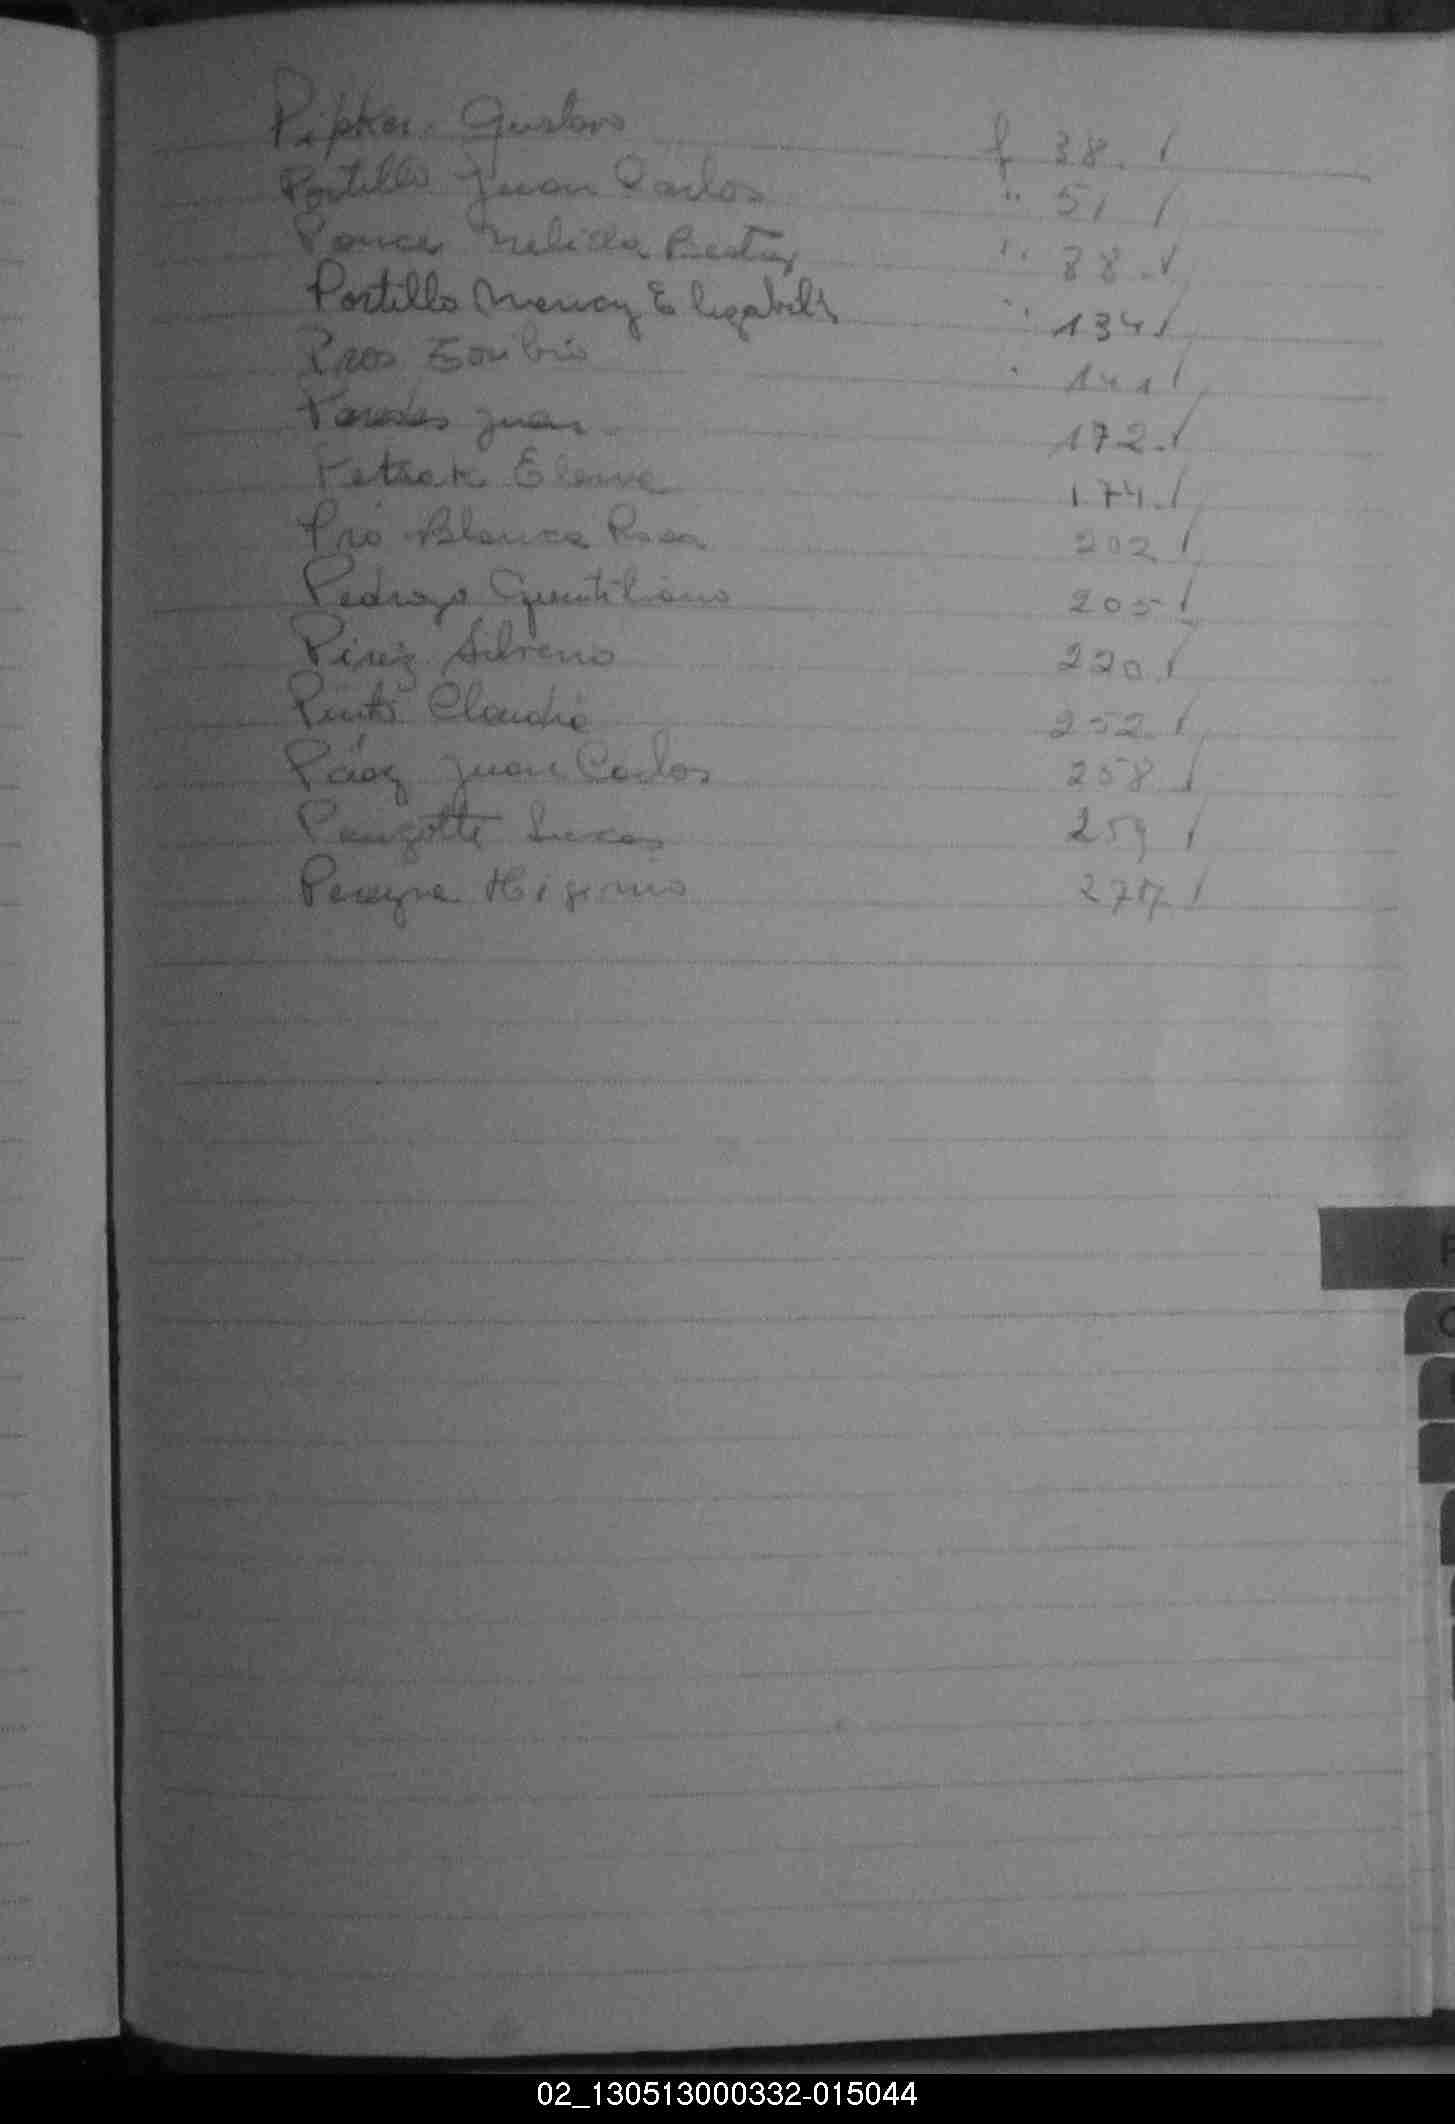 Pipker. Gustavo f 38. /
Portillo Juan Carlos " 51 /
Ponce Nelida Beatriz " 88. /
Portillo Nancy Elizabeth " 134 /
Pros Toribio " 141 /
Paredes Juan 172. /
Petrak Elena 174. /
Pró Blanca Rosa 202 /
Pedrozo Quintiliano 205 /
Pirez Silverio 220. /
Pinto Claudia 252. /
Páez Juan Carlos 258 /
Lucas 259 /
Pereyra Higinio /
P
02_130513000332-015044